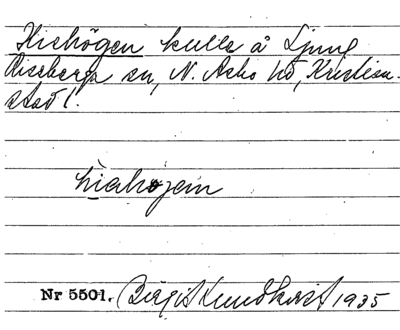 Hishögen kulle å Ljung
Riseberga sn, N. Åsbo hd, Kristian-
stad l.
hìǝhøjem
Nr 5501. Birgit Lundkvist 1935